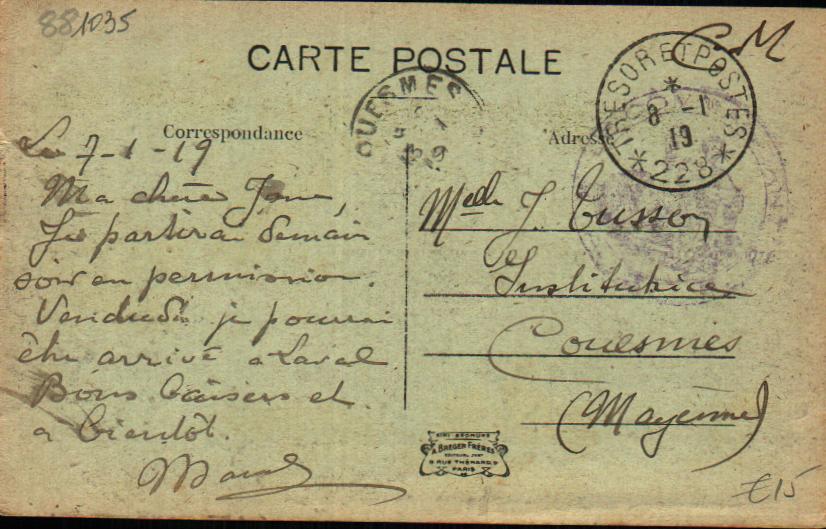 881035
CARTE POSTALE
FM
Correspondance
Adresse
COUESMES
TRESOR ET POSTES
8 -1
19
*228*
Le 7-1-19
Ma chère
Je partirai demain
soir en permission.
Vendredi je pourrai
être arrivé à Laval
Bons baisers et
a bientôt.
Melle J. Cusson
Institutrice
Couesmes
(Mayenne)
A BREGER FRÈRES
9 RUE THÉNARD, 9
PARIS
€15